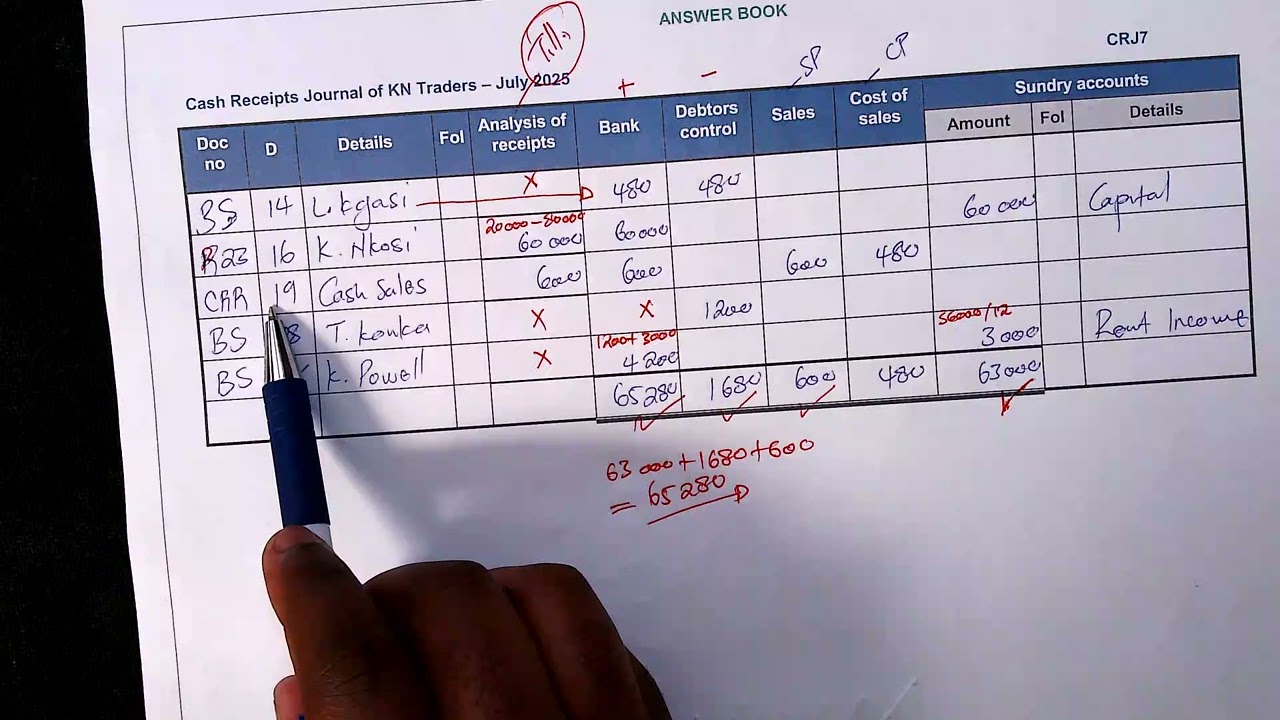 ANSWER BOOK
CRJ7
Till
Cash Receipts Journal of KN Traders – July 2025
+ – SP CP
Doc no D Details Fol Analysis of receipts Bank Debtors control Sales Cost of sales Sundry accounts
Amount Fol Details
BS 14 L. Kgasi X 480 480
20000 – 80000
R23 16 K. Nkosi 60 000 60000 60 000 Capital
CRR 19 Cash Sales 600 600 600 480
BS 8 T. Konka X X 1200
1200 + 3000 36000/12
BS K. Powell X 4 200 3 000 Rent Income
65 280 1680 600 480 63 000
63 000 + 1680 + 600
= 65 280